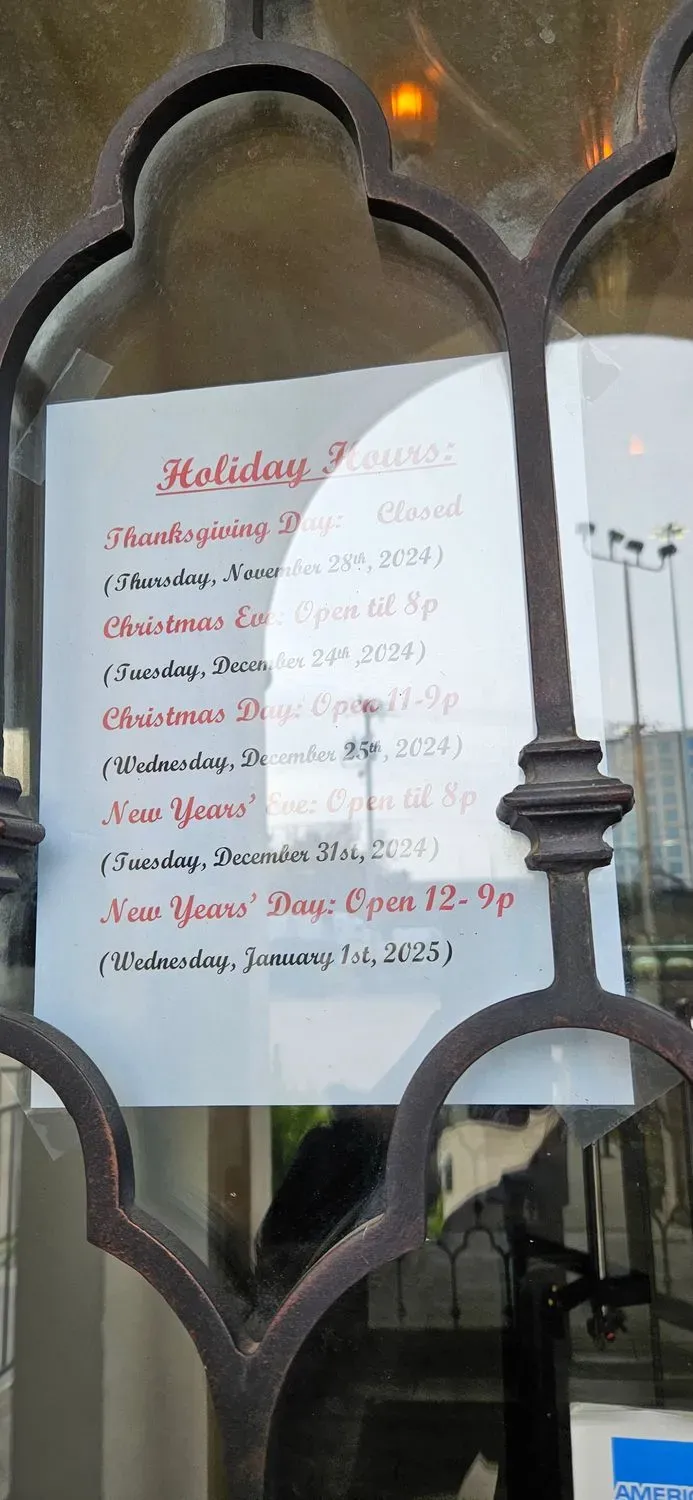 Holiday Hours:
Thanksgiving Day: Closed
(Thursday, November 28th, 2024)
Christmas Eve: Open til 8p
(Tuesday, December 24th ,2024)
Christmas Day: Open 11-9p
(Wednesday, December 25th, 2024)
New Years' Eve: Open til 8p
(Tuesday, December 31st, 2024)
New Years' Day: Open 12- 9p
(Wednesday, January 1st, 2025)